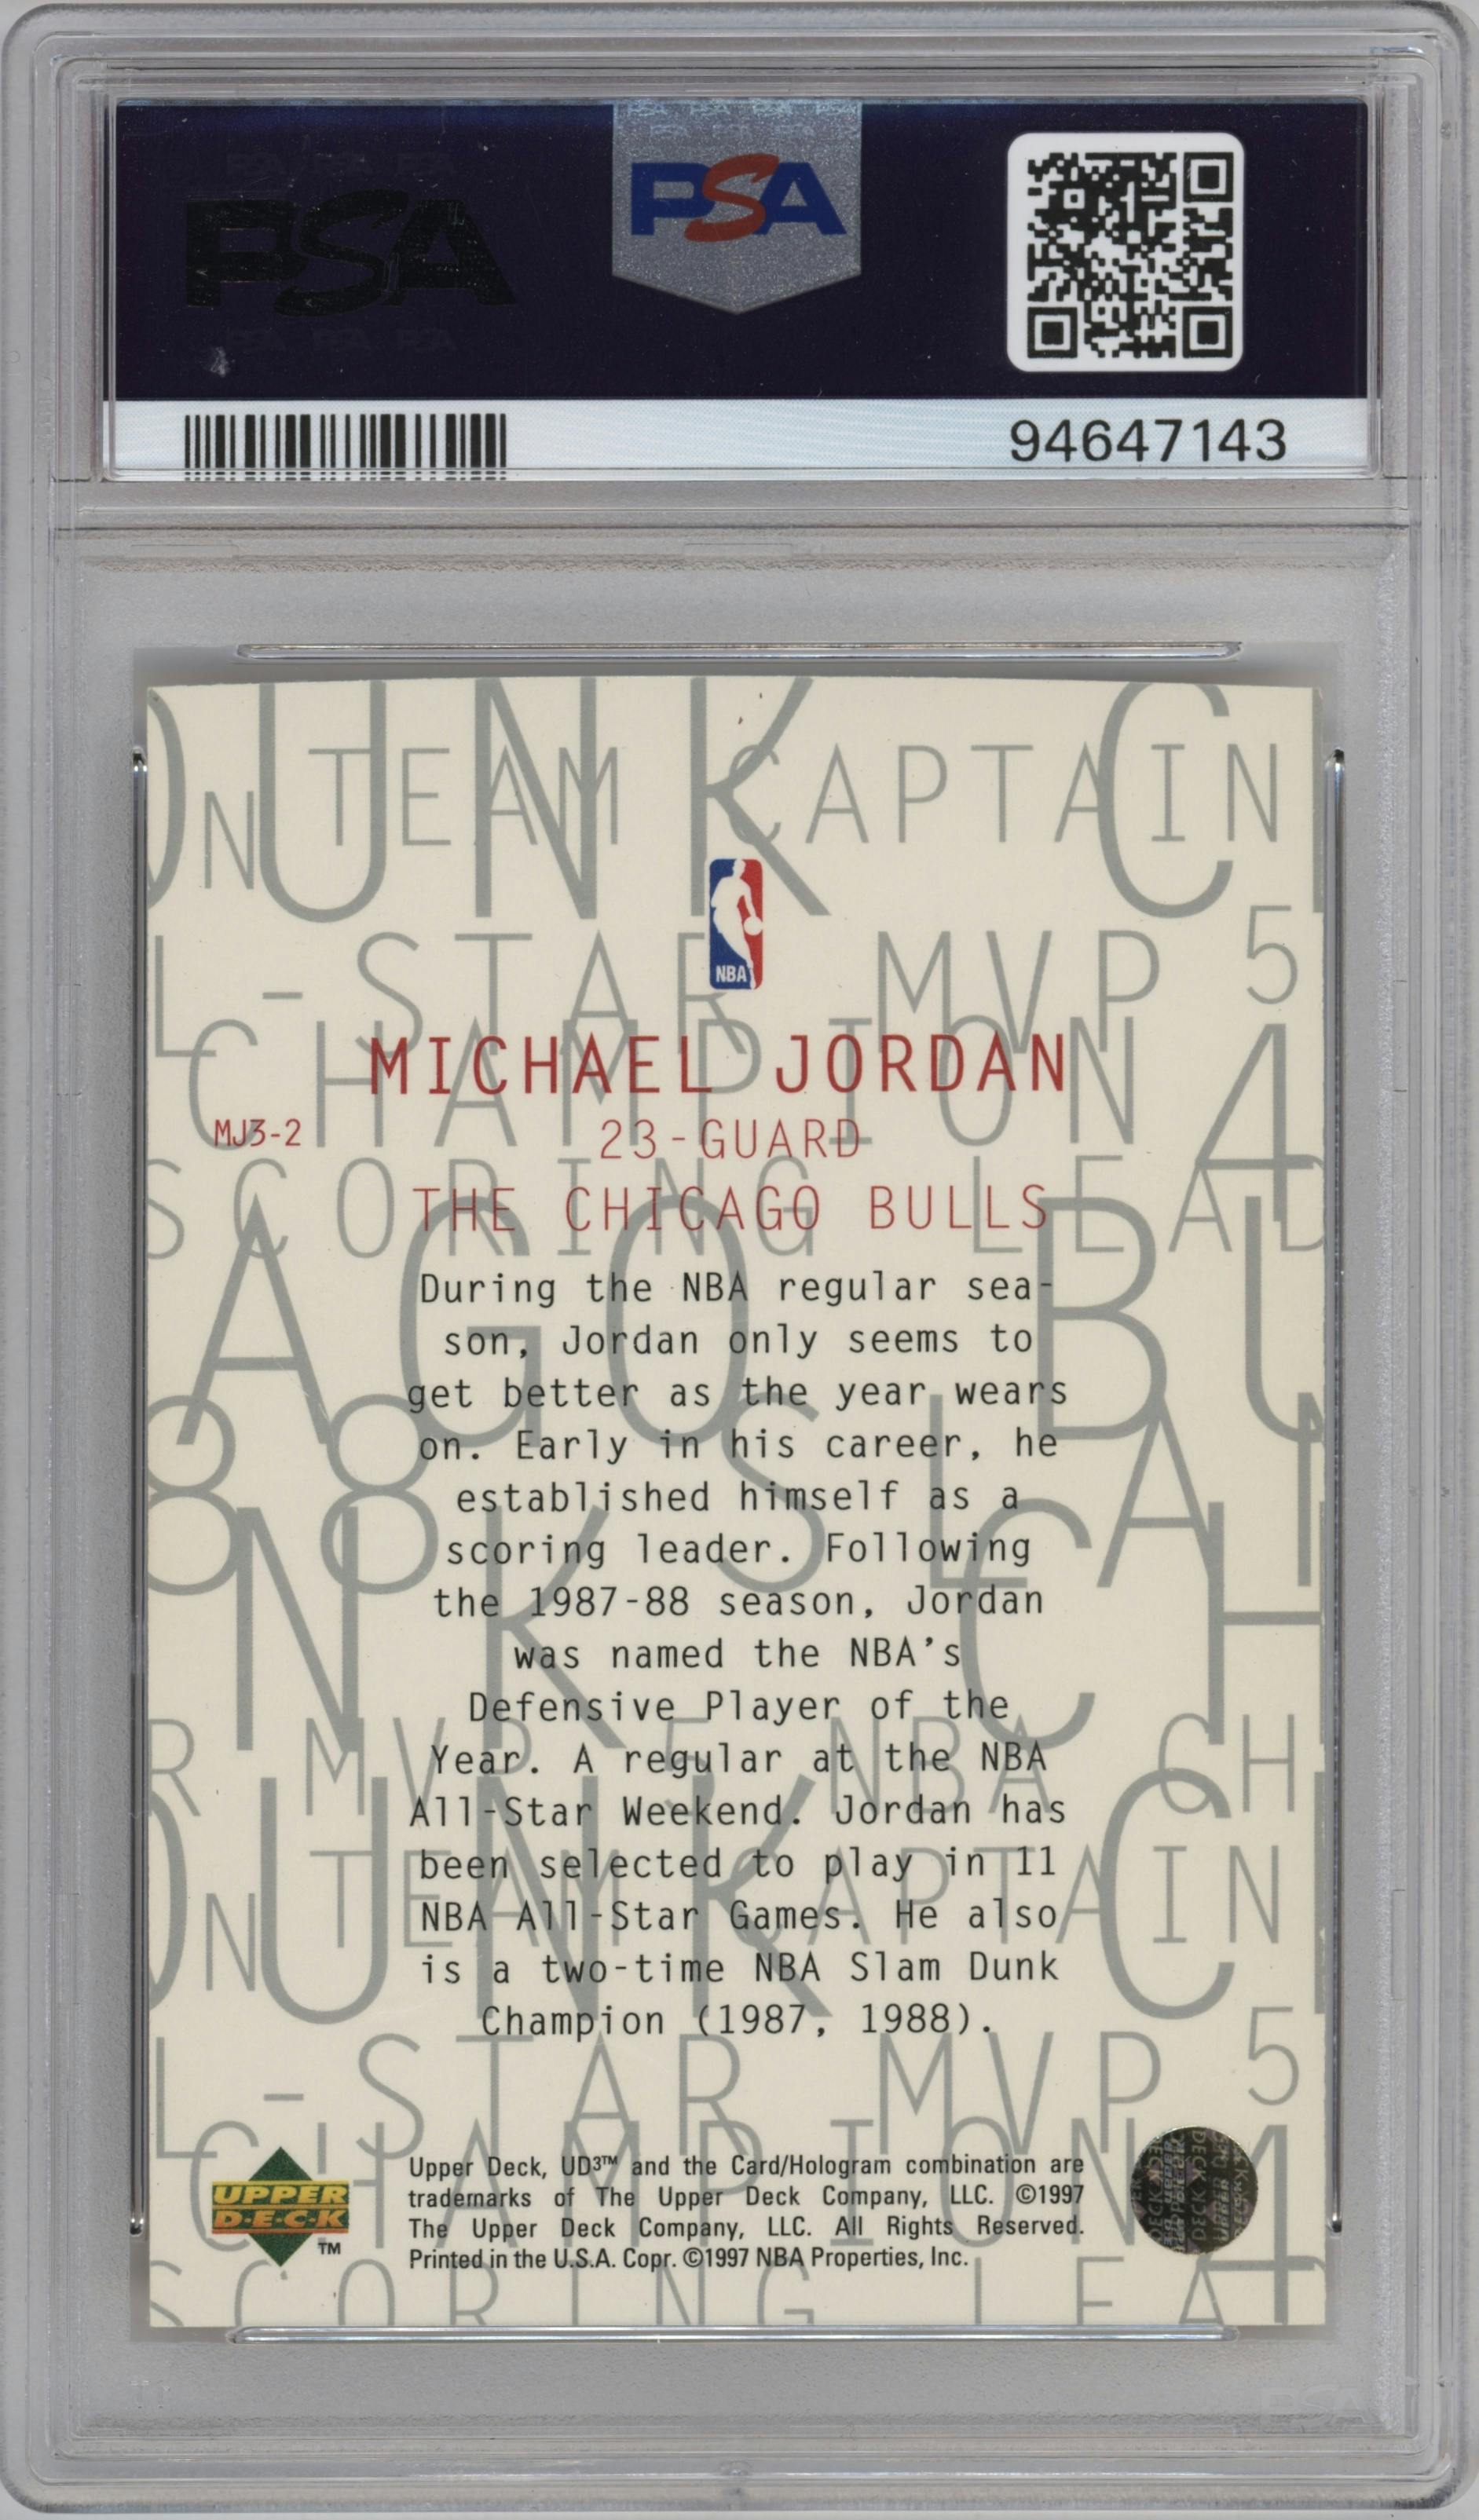 PSA
PSA
94647143
DUNK C
N TEAM CAPTAIN
NBA
L-STAR MVP 5
CHAMPION 4
MICHAEL JORDAN
MJ3-2
23-GUARD
SCORING LEAD
THE CHICAGO BULLS
AGO BU
During the NBA regular sea-
son, Jordan only seems to
get better as the year wears
on. Early in his career, he
88 SLAM
established himself as a
scoring leader. Following
NK CH
the 1987-88 season, Jordan
was named the NBA's
Defensive Player of the
R MVP 5 NBA CH
Year. A regular at the NBA
All-Star Weekend. Jordan has
DUNK C
been selected to play in 11
N TEAM CAPTAIN
NBA All-Star Games. He also
is a two-time NBA Slam Dunk
Champion (1987, 1988).
L-STAR MVP 5
CHAMPION 4
UPPER
D·E·C·K
TM
Upper Deck, UD3™ and the Card/Hologram combination are
trademarks of The Upper Deck Company, LLC. ©1997
The Upper Deck Company, LLC. All Rights Reserved.
Printed in the U.S.A. Copr. ©1997 NBA Properties, Inc.
SCORING LEA